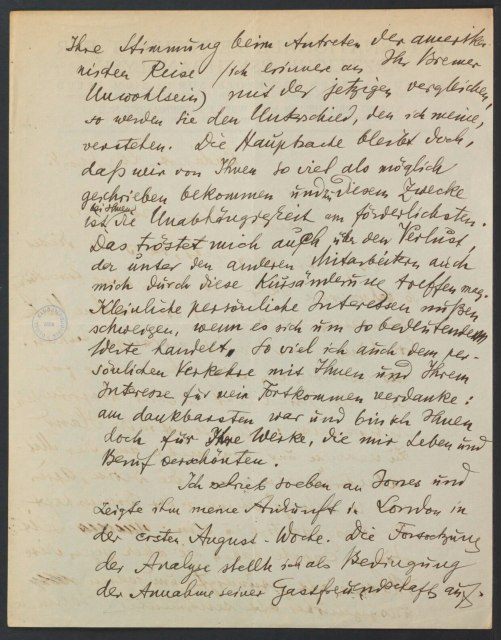 Ihre Stimmung beim Antreten der amerika-
nischen Reise (ich erinnere an Ihr Bremer
Unwohlsein) mit der jetzigen vergleichen,
so werden Sie den Unterschied, den ich meine,
verstehen. Die Hauptsache bleibt doch,
daß wir von Ihnen so viel als möglich
geschrieben bekommen und zu diesem Zwecke
ist bei Ihnen die Unabhängigkeit am förderlichsten.
Das tröstet mich auch über den Verlust,
der unter den anderen Mitarbeitern auch
mich durch diese Kursänderung treffen mag.
Kleinliche persönliche Interessen müßen
schweigen, wenn es sich um so bedeutende
Werte handelt. So viel ich auch dem per-
sönlichen Verkehre mit Ihnen und Ihrem
Interesse für mein Fortkommen verdanke:
am dankbarsten war und bin ich Ihnen
doch für Ihre Werke, die mir Leben und
Beruf verschönten.
Ich schrieb soeben an Jones und
zeigte ihm meine Ankunft in London in
der ersten August-Woche. Die Fortsetzung
der Analyse stellte ich als Bedingung
der Annahme seiner Gastfreundschaft auf.